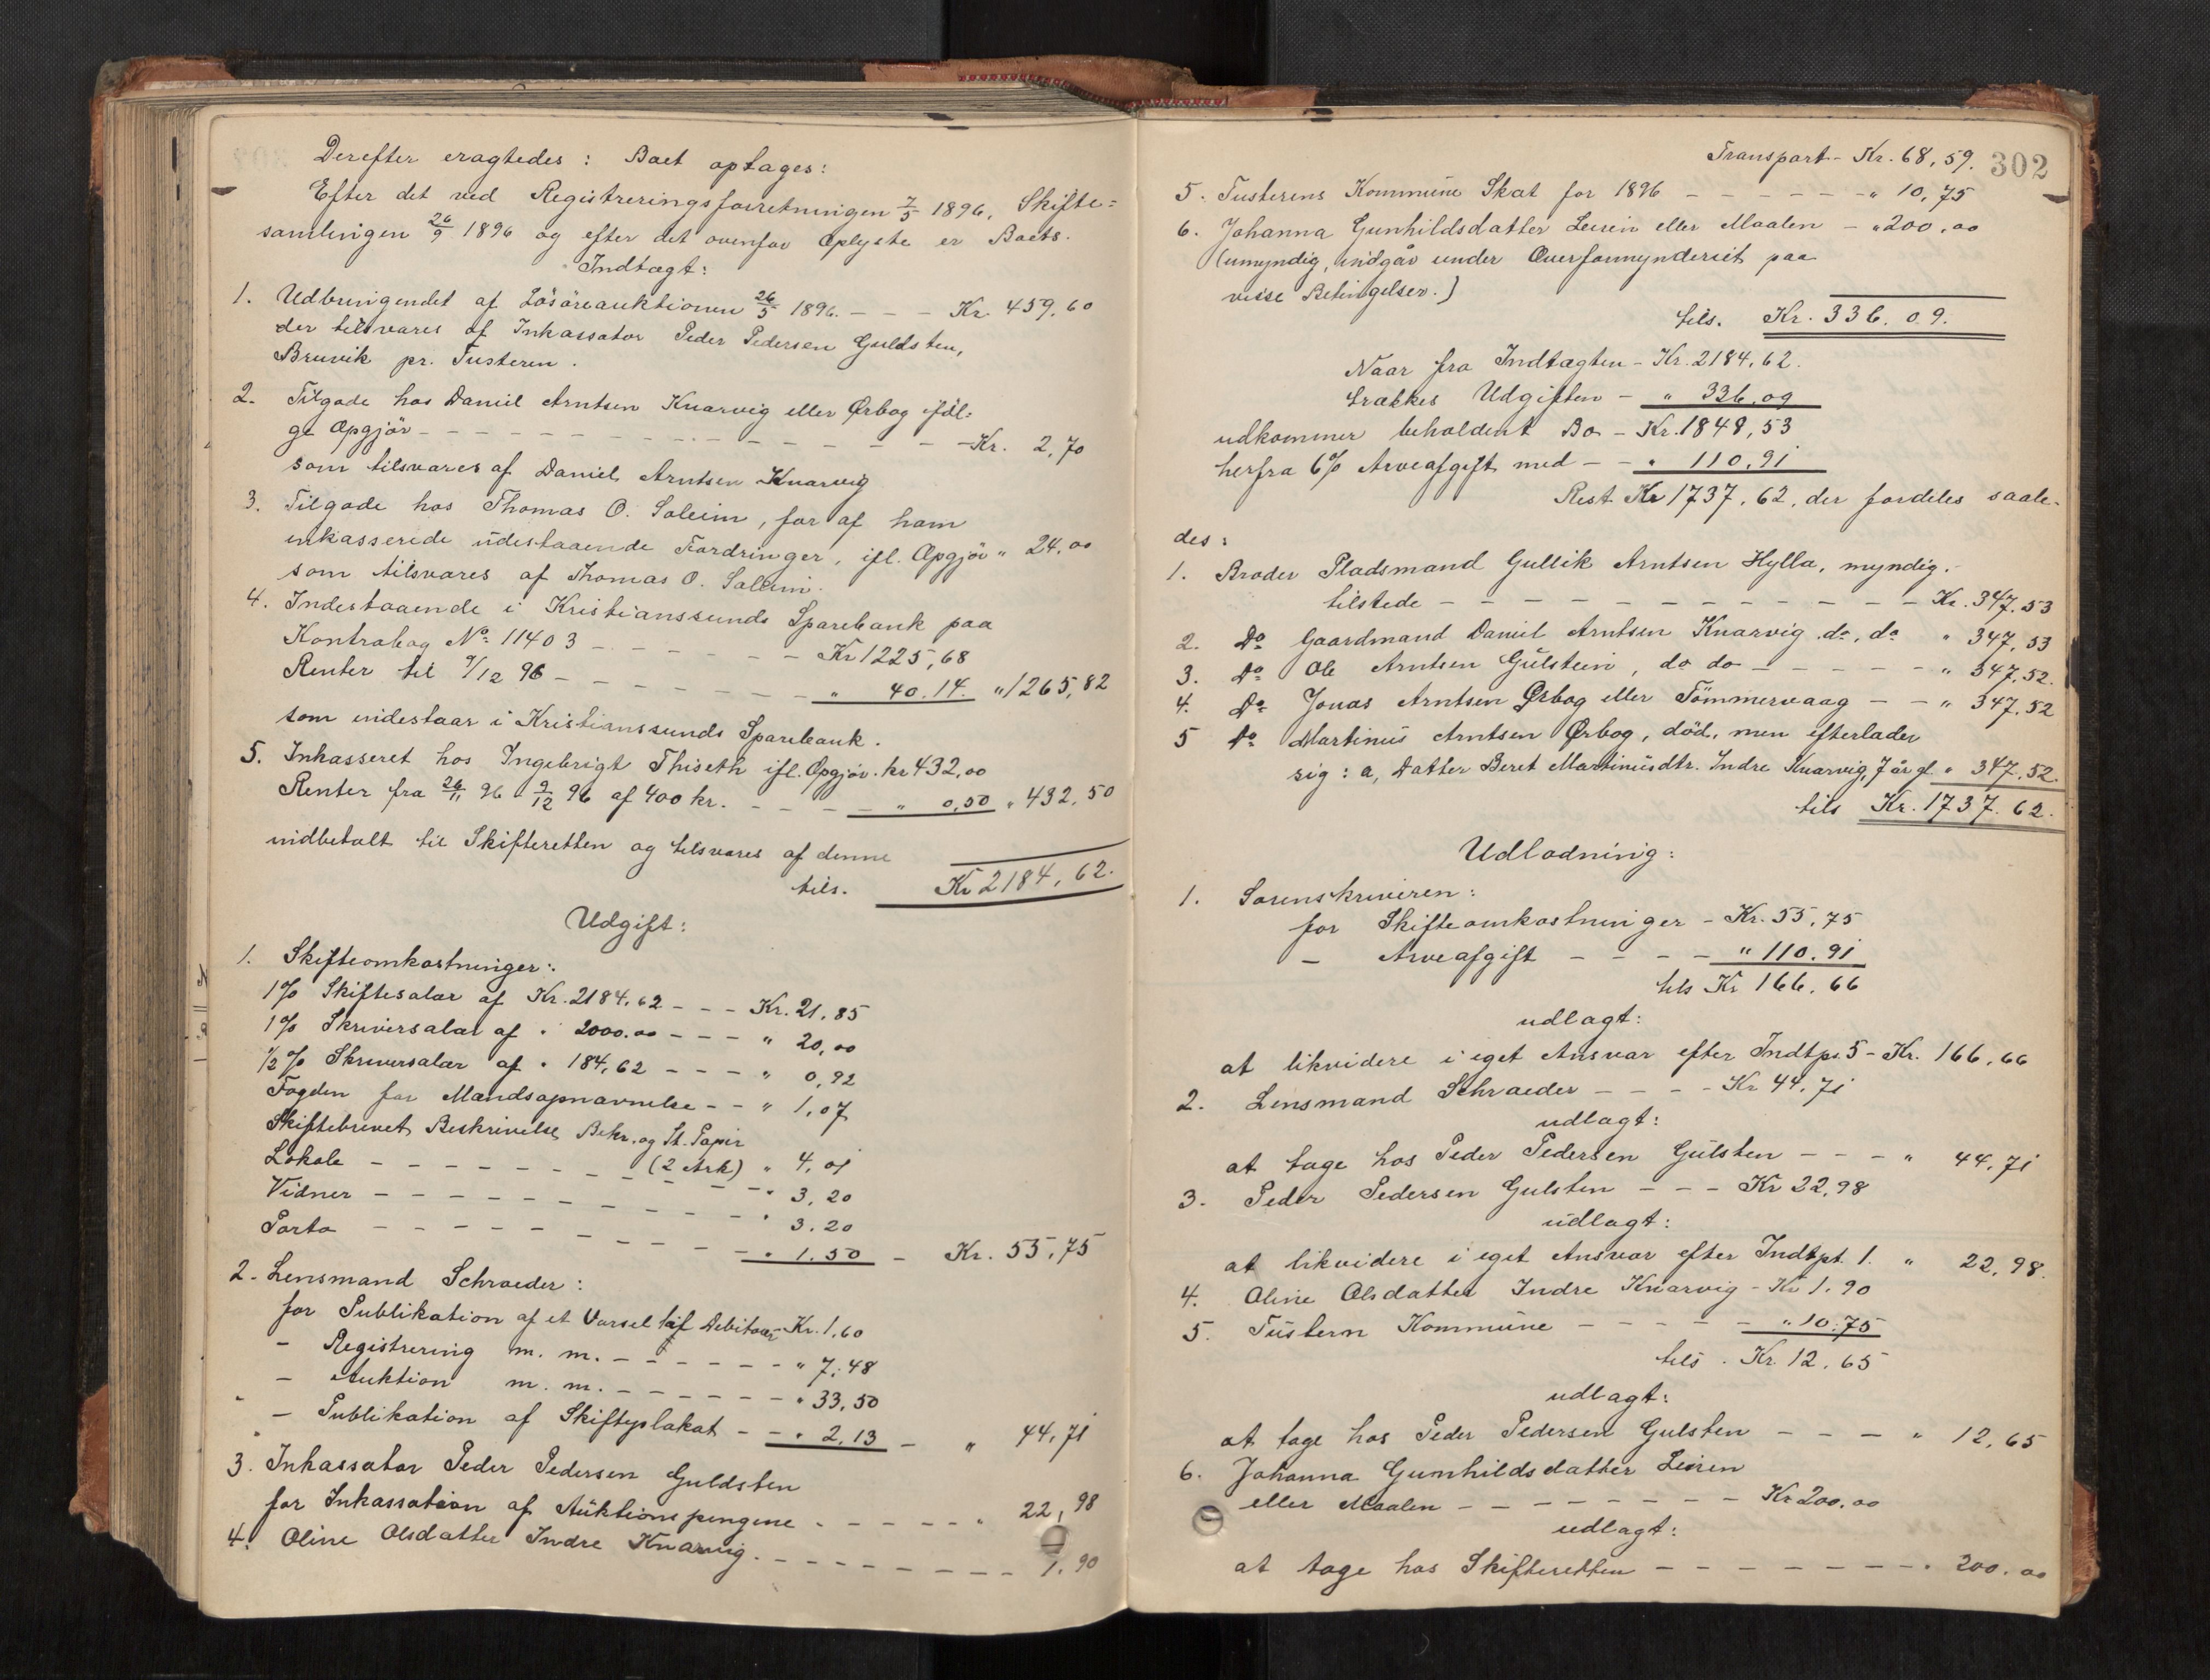 Derefter eragtedes: Boet optages:
Efter det ved Registreringsforretningen 7/5 1896, Skifte=
samlingen 26/9 1896 og efter det ovenfor Oplyste er Boets.
Indtægt:
1. Udbringendet af Lösöreauktionen 26/5 1896. - - - Kr. 459,60
der tilsvares af Inkassator Peder Pedersen Guldsten,
Bruvik pr. Tusteren.
2. Tilgode hos Daniel Arntsen Knarvig eller Ørbog iföl=
ge Opgjör - - - - - - - - - - - - Kr. 2,70
som tilsvares af Daniel Arntsen Knarvig
3. Tilgode hos Thomas O. Soleim, for af ham
inkasserede udestaaende Fordringer, ifl. Opgjör " 24,00
som tilsvares af Thomas O. Soleim.
4. Indestaaende i Kristianssunds Sparebank paa
Kontrabog No: 11403 - - - - - - Kr 1225,68
Renter til 9/12 96 - - - - - - - " 40.14. " 1265,82
som indestaar i Kristianssunds Sparebank.
5. Inkasseret hos Ingebrigt Thiseth ifl. Opgjör. kr 432,00
Renter fra 26/11 96 - 9/12 96 af 400 kr. - - - - " 0,50 " 432,50
indbetalt til Skifteretten og tilsvares af denne
tils. Kr 2184,62.
Udgift:
1. Skifteomkostninger:
1% Skiftesalær af Kr. 2184,62 - - - Kr. 21,85
1% Skriversalær af " 2000.00 - - - " 20,00
1/2% Skriversalær af " 184,62 - - - " 0,92
Fogden for Mandsopnævnelse - - " 1,07
Skiftebrevet Beskrivelse, Bekr. og St. Papir
(2 Ark) " 4,01
Lokale - - - - - - - - - - " 3,20
Vidner - - - - - - - - - - " 3.20
Porto - - - - - - - - - - " 1.50 - Kr. 55,75
2. Lensmand Schrøeder:
for Publikation af et Varsel til Debitorer Kr. 1,60
- Registrering m. m. - - - - - - " 7,48
- Auktion m. m. - - - - - - " 33,50
- Publikation af Skifteplakat - - " 2.13 - " 44,71
3. Inkassator Peder Pedersen Guldsten
for Inkassation af Auktionspengene - - - - - " 22,98
4. Oline Olsdatter Indre Knarvig. - - - - - - - - 1.90
Transport - Kr. 68,59. 302
5. Tusterens Kommune Skat for 1896 - - - - - - " 10,75
6. Johanna Gunhildsdatter Leiren eller Maalen - " 200,00
(umyndig, indgår under Overformynderiet paa
visse Betingelser.)
tils. Kr. 336.09.
Naar fra Indtægten - Kr. 2184,62.
trækkes Udgiften - " 336,09
udkommer beholdent Bo - Kr. 1848,53
herfra 6% Arveafgift med - - " 110.91
Rest Kr 1737,62, der fordeles saale-
des:
1. Broder Pladsmand Gullik Arntsen Hylla, myndig,
tilstede - - - - - - - - - - - Kr. 347.53
2. Do Gaardmand Daniel Arntsen Knarvig, do, do " 347,53
3. Do Ole Arntsen Gulstein, do do - - - - - " 347,52.
4. Do Jonas Arntsen Ørbog eller Tömmervaag - - " 347,52
5 Do Martinus Arntsen Ørbog, död, men efterlader
sig: a, Datter Beret Martinusdtr. Indre Knarvig, 7 år gl. " 347,52.
tils Kr. 1737.62.
Udlodning:
1. Sorenskriveren:
for Skifteomkostninger - Kr. 55,75
- Arveafgift - - - - " 110.91
tils Kr 166.66
udlagt:
at likvidere i eget Ansvar efter Indtps. 5 - Kr. 166,66
2. Lensmand Schrøeder - - - - Kr 44,71
udlagt:
at tage hos Peder Pedersen Gulsten - - - " 44,71
3. Peder Pedersen Gulsten - - - Kr 22,98
udlagt:
at likvidere i eget Ansvar efter Indtpt. 1. " 22,98.
4. Oline Olsdatter Indre Knarvig - Kr 1.90
5. Tustern Kommune - - - - - " 10.75
tils. Kr. 12.65
udlagt:
at tage hos Peder Pedersen Gulsten - - - " 12,65
6. Johanna Gunhildsdatter Leiren
eller Maalen - - - - - - - - Kr 200.00
udlagt:
at tage hos Skifteretten - - - - - - - " 200.00